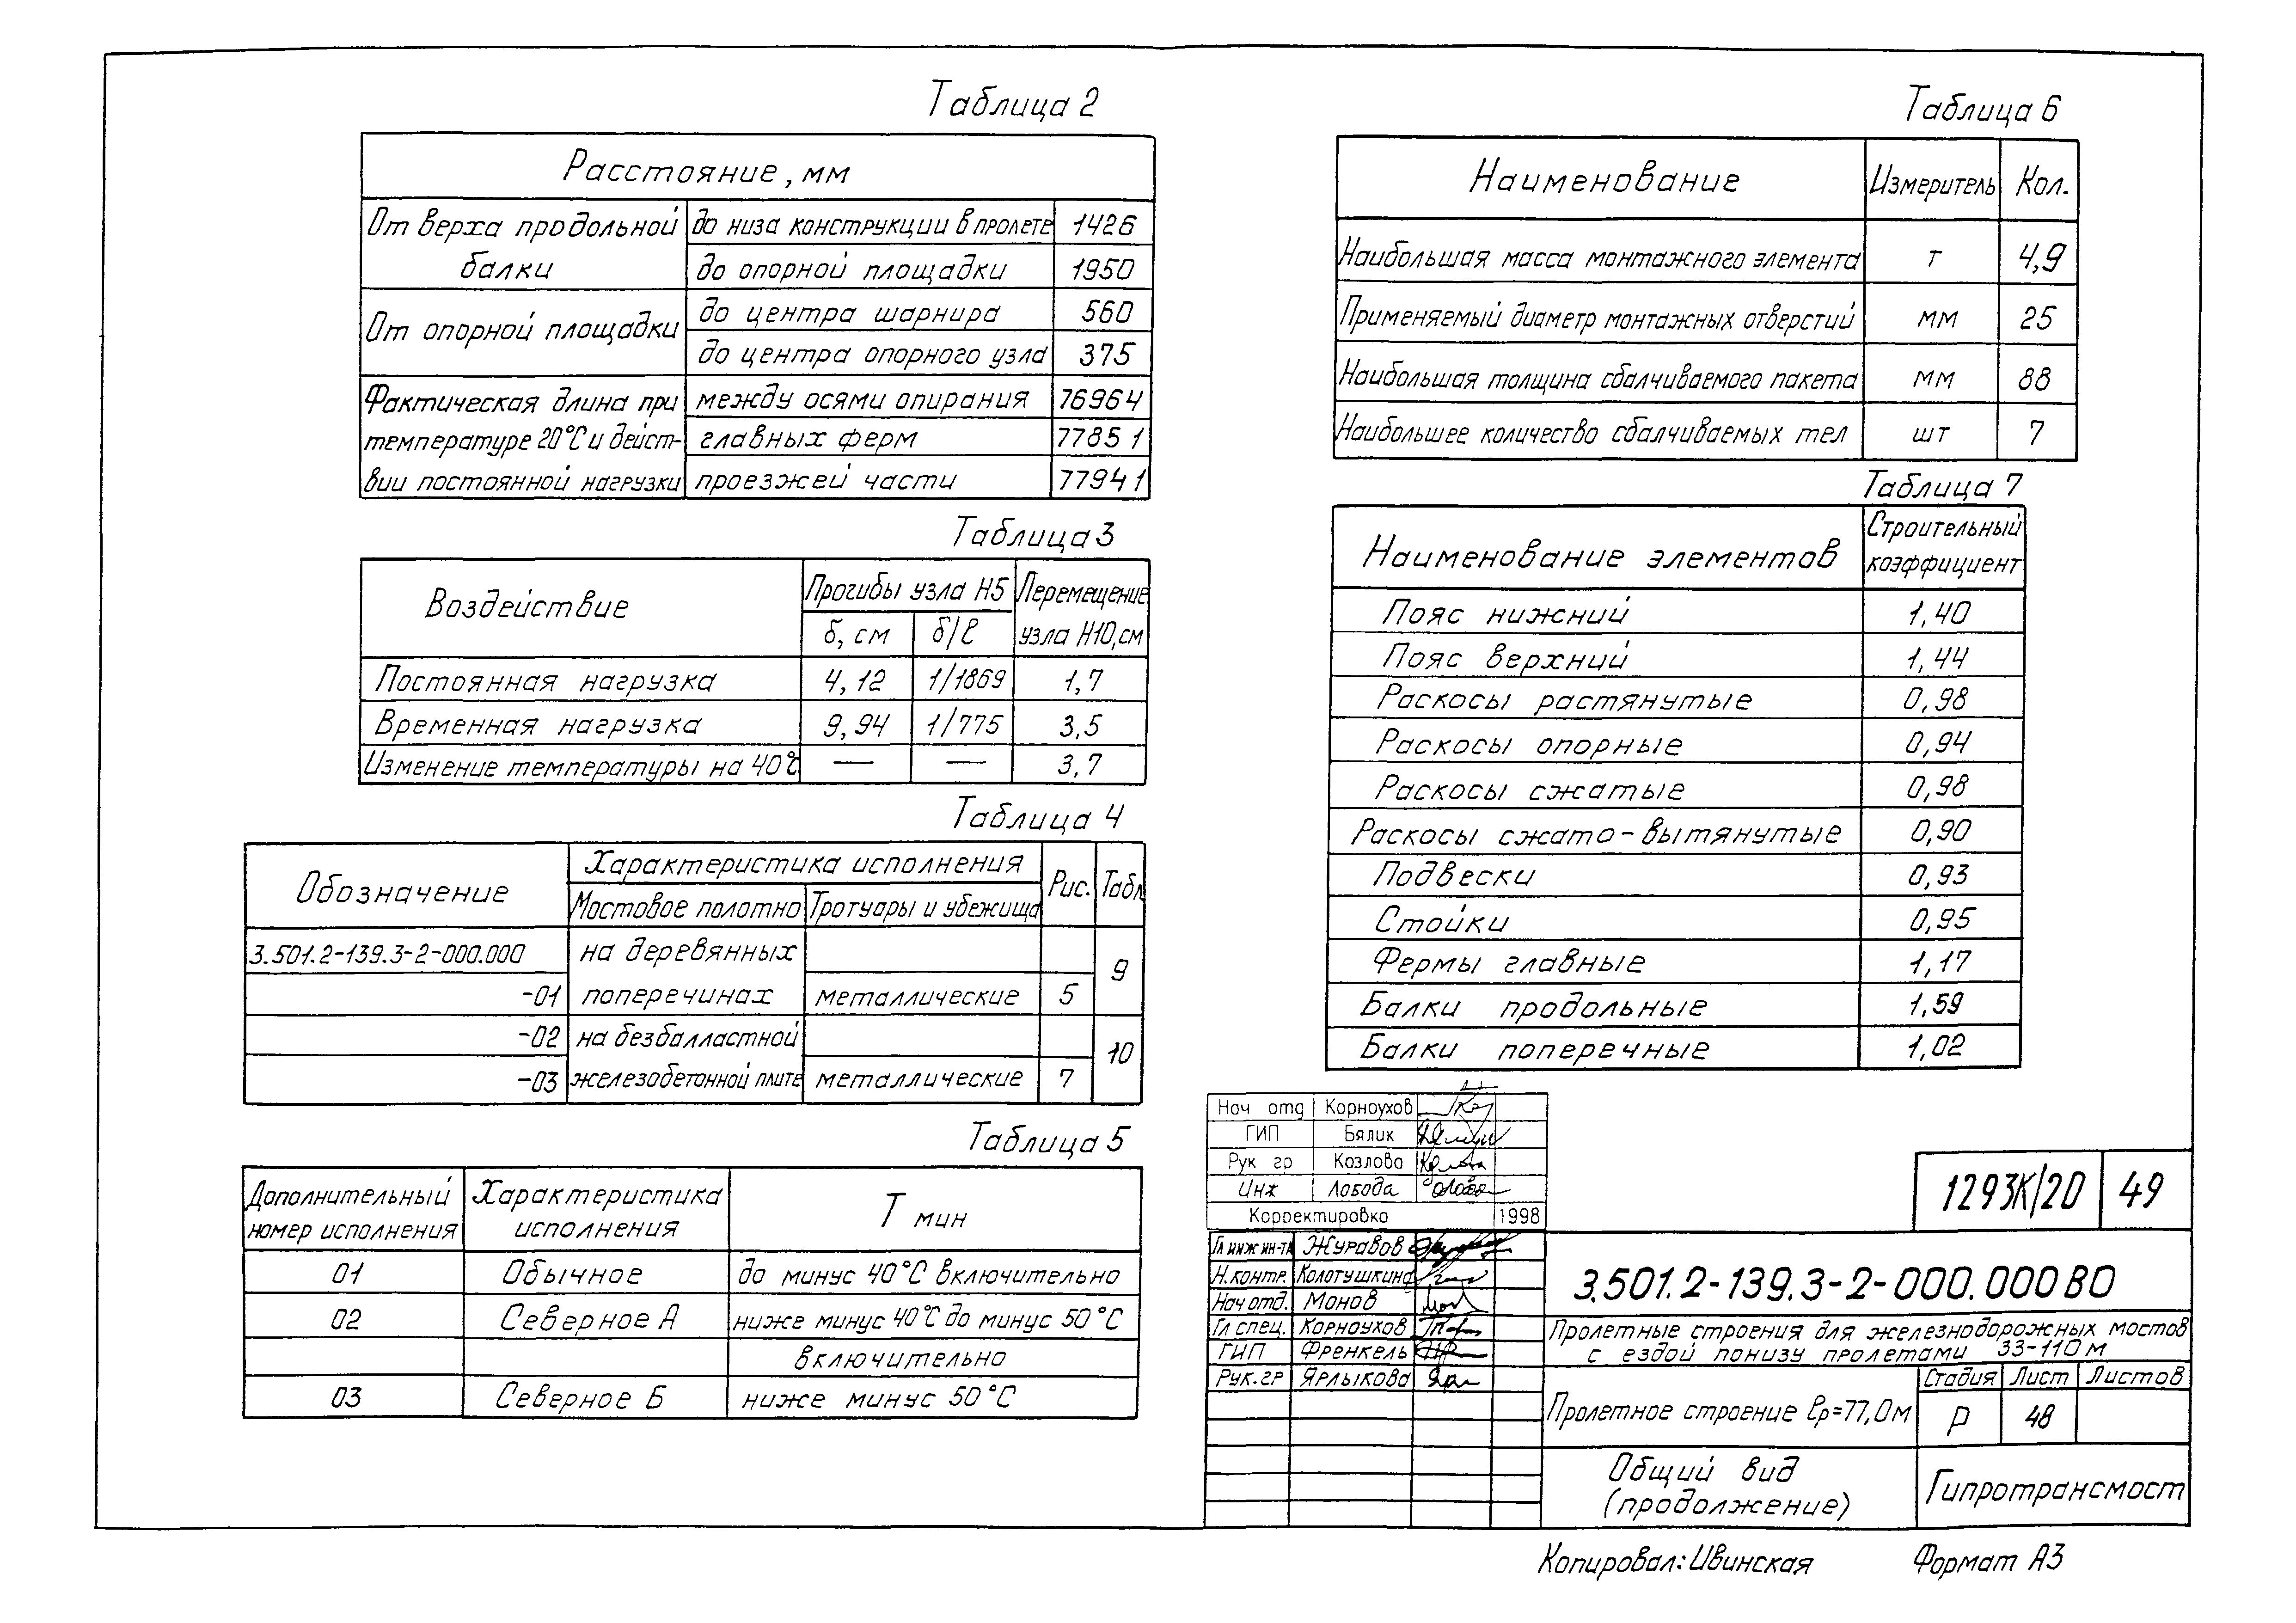 Таблица 2
Расстояние, мм
От верха продольной балки
до низа конструкции в пролете 1426
до опорной площадки 1950
От опорной площадки
до центра шарнира 560
до центра опорного узла 375
Фактическая длина при температуре 20°С и дейст-
вии постоянной нагрузки
между осями опирания 76964
главных ферм 77851
проезжей части 77941
Таблица 3
Воздействие
Прогибы узла Н5
Перемещение узла Н10,см
δ, см δ/ℓ
Постоянная нагрузка 4,12 1/1869 1,7
Временная нагрузка 9,94 1/775 3,5
Изменение температуры на 40°С — — 3,7
Таблица 4
Обозначение
Характеристика исполнения
Рис. Табл
Мостовое полотно Тротуары и убежища
3.501.2-139.3-2-000.000 на деревянных
9
-01 поперечинах металлические 5
-02 на безбалластной
10
-03 железобетонной плите металлические 7
Таблица 5
Дополнительный номер исполнения
Характеристика исполнения
Т мин
01 Обычное до минус 40°С включительно
02 Северное А ниже минус 40°С до минус 50°С
включительно
03 Северное Б ниже минус 50°С
Таблица 6
Наименование Измеритель Кол.
Наибольшая масса монтажного элемента т 4,9
Применяемый диаметр монтажных отверстий мм 25
Наибольшая толщина сбалчиваемого пакета мм 88
Наибольшее количество сбалчиваемых тел шт 7
Таблица 7
Наименование элементов
Строительный коэффициент
Пояс нижний 1,40
Пояс верхний 1,44
Раскосы растянутые 0,98
Раскосы опорные 0,94
Раскосы сжатые 0,98
Раскосы сжато-вытянутые 0,90
Подвески 0,93
Стойки 0,95
Фермы главные 1,17
Балки продольные 1,59
Балки поперечные 1,02
Нач отд Корноухов
ГИП Бялик
Рук гр Козлова
Инж Лобода
Корректировка 1998
Гл инж ин-та Журавов
Н.контр. Колотушкина
Нач отд. Монов
Гл спец. Корноухов
ГИП Френкель
Рук.гр Ярлыкова
1293К/20 49
3.501.2-139.3-2-000.000ВО
Пролетные строения для железнодорожных мостов
с ездой понизу пролетами 33-110 м
Пролетное строение ℓр=77,0м
Стадия Лист Листов
Р 48
Общий вид
(продолжение)
Гипротрансмост
Копировал: Ивинская Формат А3